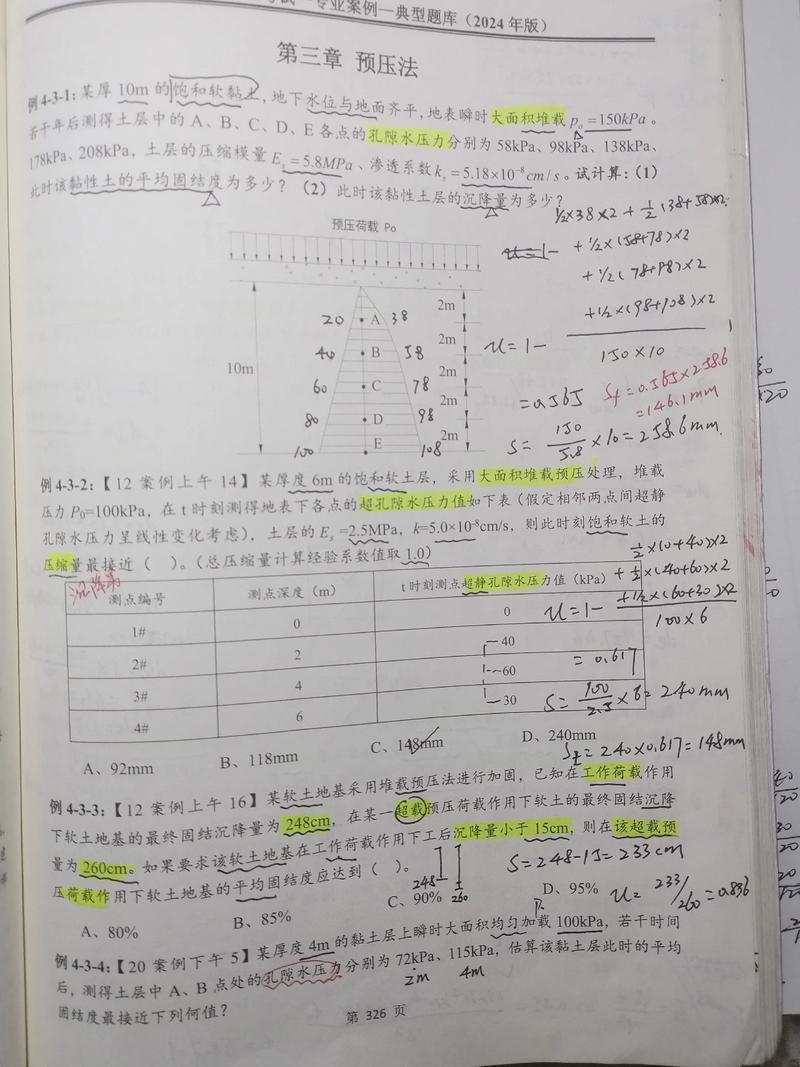 专业案例—典型题库（2024年版）
第三章 预压法
例4-3-1：某厚10m的饱和软黏土，地下水位与地面齐平，地表瞬时大面积堆载p₀=150kPa。
若干年后测得土层中的A、B、C、D、E各点的孔隙水压力分别为58kPa、98kPa、138kPa、
178kPa、208kPa，土层的压缩模量Eₛ=5.8MPa、渗透系数kₛ=5.18×10⁻⁸cm/s。试计算：（1）
此时该黏性土的平均固结度为多少？（2）此时该黏性土层的沉降量为多少？
½×38×2+½(38+58)×2
预压荷载 P₀
u=1-
+½×(58+78)×2
+½(78+98)×2
+½×(98+108)×2
150×10
10m
2m
2m
2m
2m
2m
20 A 38
40 B 58
60 C 78
80 D 98
100 E 108
u=1-
=0.565
Sₜ=0.565×258.6
=146.1mm
S=150/5.8×10=258.6mm
例4-3-2：【12案例上午14】某厚度6m的饱和软土层，采用大面积堆载预压处理，堆载
压力P₀=100kPa，在t时刻测得地表下各点的超孔隙水压力值如下表（假定相邻两点间超静
孔隙水压力呈线性变化考虑），土层的Eₛ=2.5MPa，k=5.0×10⁻⁸cm/s，则此时刻饱和软土的
压缩量最接近（ ）。（总压缩量计算经验系数值取1.0）
沉降
½×(0+40)×2
+½×(40+60)×2
+½×(60+30)×2
u=1-
100×6
=0.617
S=100/2.5×6=240mm
Sₜ=240×0.617=148mm
测点编号 测点深度（m） t时刻测点超静孔隙水压力值（kPa）
1# 0 0
2# 2 40
3# 4 60
4# 6 30
A、92mm B、118mm C、148mm D、240mm
例4-3-3：【12案例上午16】某软土地基采用堆载预压法进行加固，已知在工作荷载作用
下软土地基的最终固结沉降量为248cm，在某一超载预压荷载作用下软土的最终固结沉降
量为260cm。如果要求该软土地基在工作荷载作用下工后沉降量小于15cm，则在该超载预
压荷载作用下软土地基的平均固结度应达到（ ）。
248
260
S=248-15=233cm
u=233/260=0.896
A、80% B、85% C、90% D、95%
例4-3-4：【20案例下午5】某厚度4m的黏土层上瞬时大面积均匀加载100kPa，若干时间
P₀
后，测得土层中A、B点处的孔隙水压力分别为72kPa、115kPa，估算该黏土层此时的平均
2m
4m
固结度最接近下列何值？
第 326 页